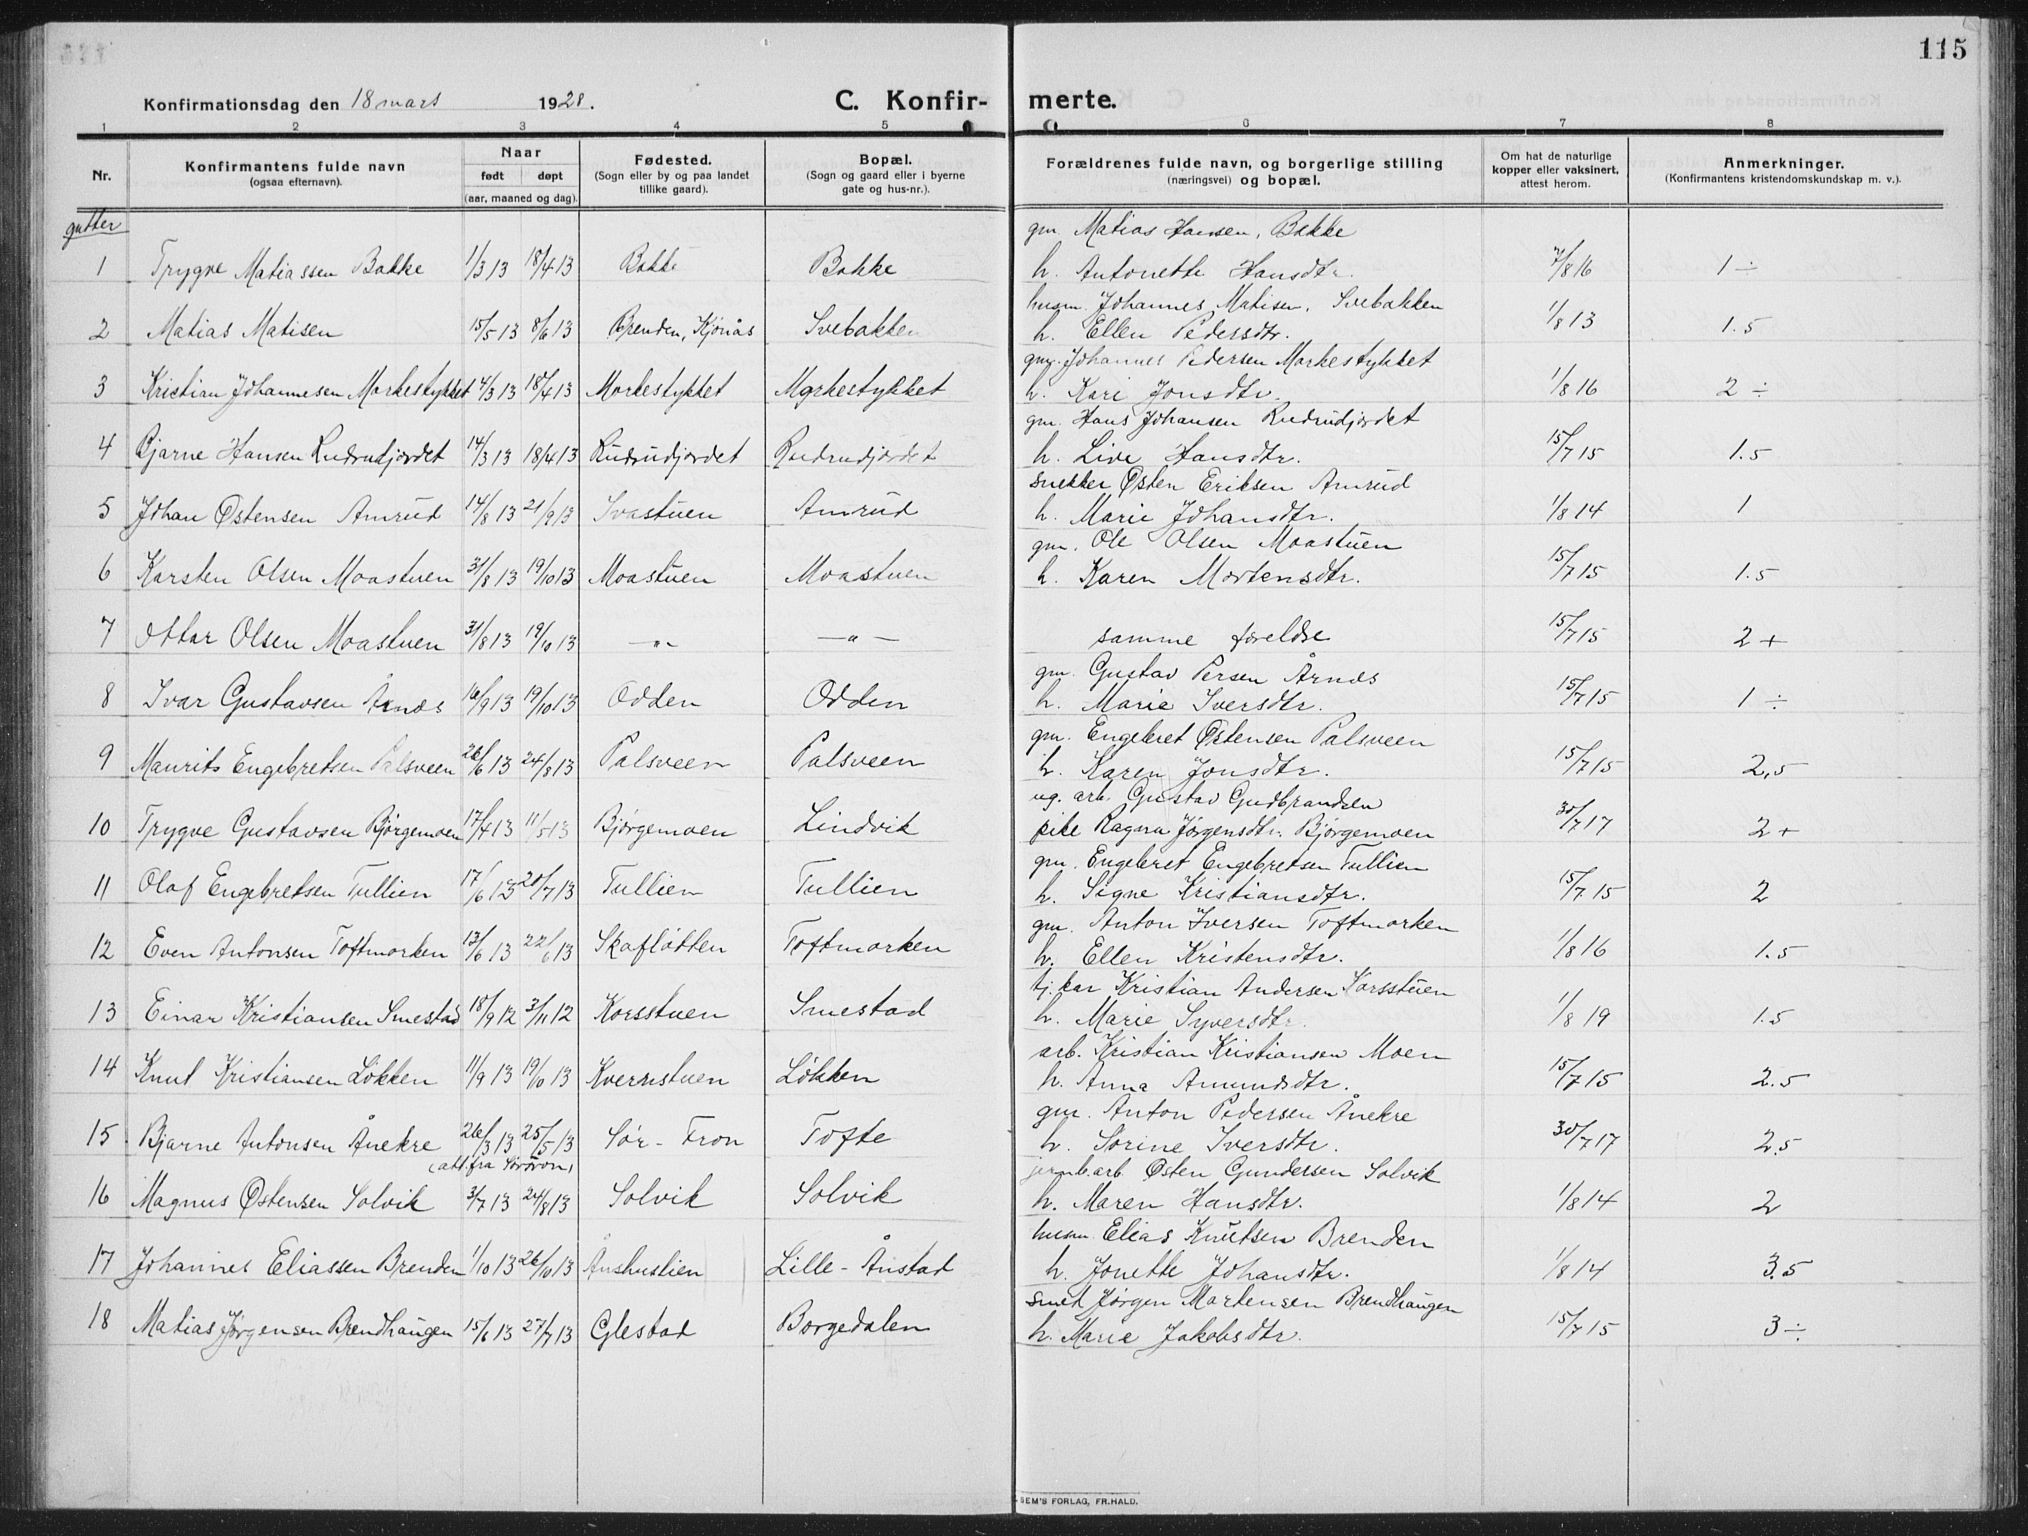 115
Konfirmationsdag den 18 mars 1928.
C. Konfir- merte.
1 2 3 4 5 6 7 8
Nr.
Konfirmantens fulde navn
(ogsaa efternavn).
Naar
født døpt
(aar, maaned og dag).
Fødested.
(Sogn eller by og paa landet
tillike gaard).
Bopæl.
(Sogn og gaard eller i byerne
gate og hus-nr.).
Forældrenes fulde navn, og borgerlige stilling
(næringsvei) og bopæl.
Om hat de naturlige
kopper eller vaksinert,
attest herom.
Anmerkninger.
(Konfirmantens kristendomskundskap m. v.).
gutter
gm. Matias Hansen, Bakke
1 Trygve Matiassen Bakke 1/3 13 18/4 13 Bakke Bakke h. Antonette Hansdtr. 7/8 16 1 ÷
husm. Johannes Matisen, Svebakken
2 Matias Matisen 15/5 13 8/6 13 Brenden, Kjønås Svebakken h. Ellen Pedersdtr. 1/8 13 1.5
gmg. Johannes Pedersen Markestykket
3 Kristian Johannesen Markestykket 4/3 13 18/4 13 Markestykket Markestykket h. Kari Jonsdtr. 1/8 16 2 ÷
gm. Hans Johansen Rudrudjordet
4 Bjarne Hansen Rudrudjordet 14/3 13 18/4 13 Rudrudjordet Rudrudjordet h. Live Hansdtr. 15/7 15 1.5
snekker Østen Eriksen Amrud
5 Johan Østensen Amrud 14/8 13 21/9 13 Svastuen Amrud h. Marie Johansdtr. 1/8 14 1
gm. Ole Olsen Moastuen
6 Karsten Olsen Moastuen 31/8 13 19/10 13 Moastuen Moastuen h. Karen Mortensdtr. 15/7 15 1.5
7 Ottar Olsen Moastuen 31/8 13 19/10 13 —"— —"— samme foreldre 15/7 15 2 +
gm. Gustav Persen Årnes
8 Ivar Gustavsen Årnes 16/9 13 19/10 13 Odden Odden h. Marie Iversdtr. 15/7 15 1 ÷
gm. Engebret Østensen Palsveen
9 Maurits Engebretsen Palsveen 26/6 13 24/8 13 Palsveen Palsveen h. Karen Jonsdtr. 15/7 15 2,5
ug. arb. Gustav Gudbrandsen
10 Trygve Gustavsen Bjørgemoen 17/4 13 11/5 13 Bjørgemoen Lindvik pike Ragna Jørgensdtr. Bjørgemoen 30/7 17 2 +
gm. Engebret Engebretsen Tullien
11 Olaf Engebretsen Tullien 17/6 13 20/7 13 Tullien Tullien h. Signe Kristiansdtr. 15/7 15 2
gm. Anton Iversen Toftmorken
12 Even Antonsen Toftmorken 13/6 13 22/6 13 Skafløtten Toftmorken h. Ellen Kristensdtr. 1/8 16 1.5
tj. kar Kristian Andersen Korsstuen
13 Einar Kristiansen Smestad 18/9 12 3/11 12 Korsstuen Smestad h. Marie Syversdtr. 1/8 19 1.5
arb. Kristian Kristiansen Moen
14 Knut Kristiansen Løkken 11/9 13 19/10 13 Kvernstuen Løkken h. Anna Amundsdtr. 15/7 15 2.5
gm. Anton Pedersen Ånekre
15 Bjarne Antonsen Ånekre 26/3 13 25/5 13 Sør-Fron Tofte h. Sørine Iversdtr. 30/7 17 2.5
(att. fra Sørfron)
jernb.arb. Østen Gundersen Solvik
16 Magnus Østensen Solvik 3/7 13 24/8 13 Solvik Solvik h. Maren Hansdtr. 1/8 14 2
husm. Elias Knutsen Brenden
17 Johannes Eliassen Brenden 1/10 13 26/10 13 Åushuslien Lille-Ånstad h. Jonette Johansdtr. 1/8 14 3.5
smed Jørgen Martensen Brendhaugen
18 Matias Jørgensen Brendhaugen 15/6 13 27/7 13 Glestad Borgedalen h. Marie Jakobsdtr. 15/7 15 3 ÷
SEM'S FORLAG, FR.HALD.